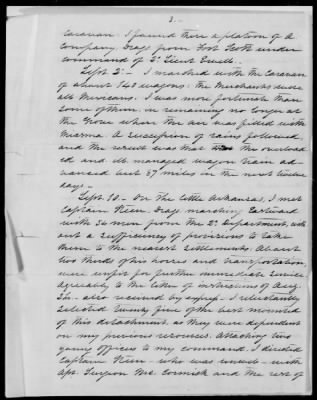 3.
caravan. I found there a platoon of A
Company Drags. from Fort Scott under
command of 2d Lieut. Ewell.
Sept. 2d - I marched with the caravan
of about 140 wagons; the merchants were
all Mexicans. I was more fortunate than
some of them in remaining no longer at
the Grove where the air was filled with
miasma. A succession of rains followed,
and the result was that the overload-
ed and ill managed wagon train ad-
vanced but 57 miles in the next twelve
days.
Sept. 10 - On the little Arkansas, I met
Captain Drags. marching Eastward
with 36 men from the 2d Department, with-
out a sufficiency of provisions to take
them to the nearest settlements. About
two thirds of his horses and transportation,
were unfit for further immediate service
agreeably to the letter of instructions of Aug.
also received by express - I reluctantly
selected twenty five of the best mounted
of this detachment as they were dependent
on my previous resources. Attaching two
young officers to my command, I directed
Captain - who was unwell - with
Apt. Surgeon McCormick and the rest of